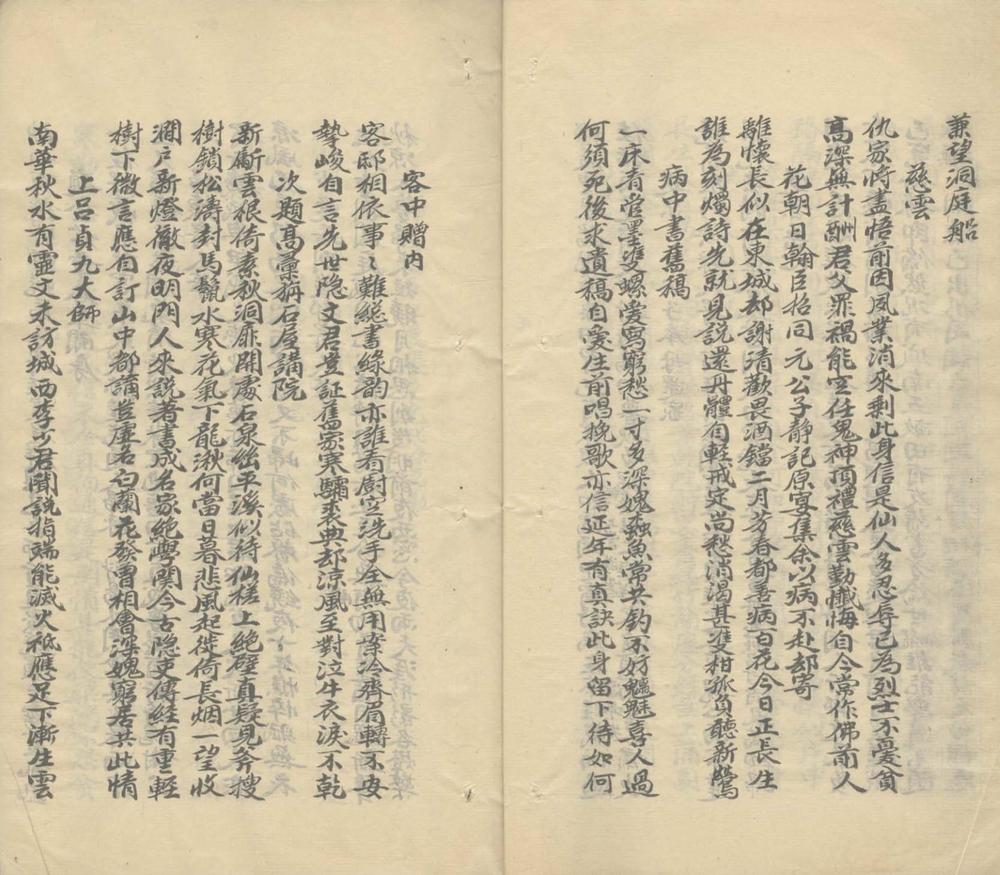 兼望洞庭船
慈雲
仇家將盡悟前因夙業消來剩此身信是仙人多忍辱已為烈士不憂貧
高深無計酬君父罪禍能空任鬼神頂禮慈雲勤懺悔自今常作佛前人
花朝日翰臣招同元公子靜記原宴集余以病不赴却寄
離懷長似在東城却謝清歡畏酒鐺二月芳春都善病百花今日正長生
誰為刻燭詩先就見說還丹體自輕戒定尚愁消渴甚雙柑孤負聽新鶯
病中書舊稿
一床香管墨雙螺愛寫窮愁一寸多深媿蟲魚常共釣不妨魑魅喜人過
何須死後求遺稿自愛生前唱挽歌亦信延年有真訣此身留下待如何
客中贈內
客邸相依事〻難總書綠韵亦誰看廚空洗手全無用案冷齊眉轉不安
勢峻自言先世隐文君豈証舊家寒驌裘典却涼風至對泣牛衣淚不乾
次題高彙旃石屋講院
新斸雲根倚素秋洞扉開處石泉幽平溪似待仙槎上絕壁真疑見斧搜
樹鎖松濤封馬鬣水寒花氣下龍湫何當日暮悲風起徙倚長烟一望收
澗戶新燈徹夜明門人來說著書成名家絕學關今古隐吏傳經有重輕
樹下微言應自訂山中都講豈虛名白蘭花發曾相會深媿窮居共此情
上呂貞九大師
南華秋水有靈文未訪城西李少君聞說指端能滅火祗應足下漸生雲